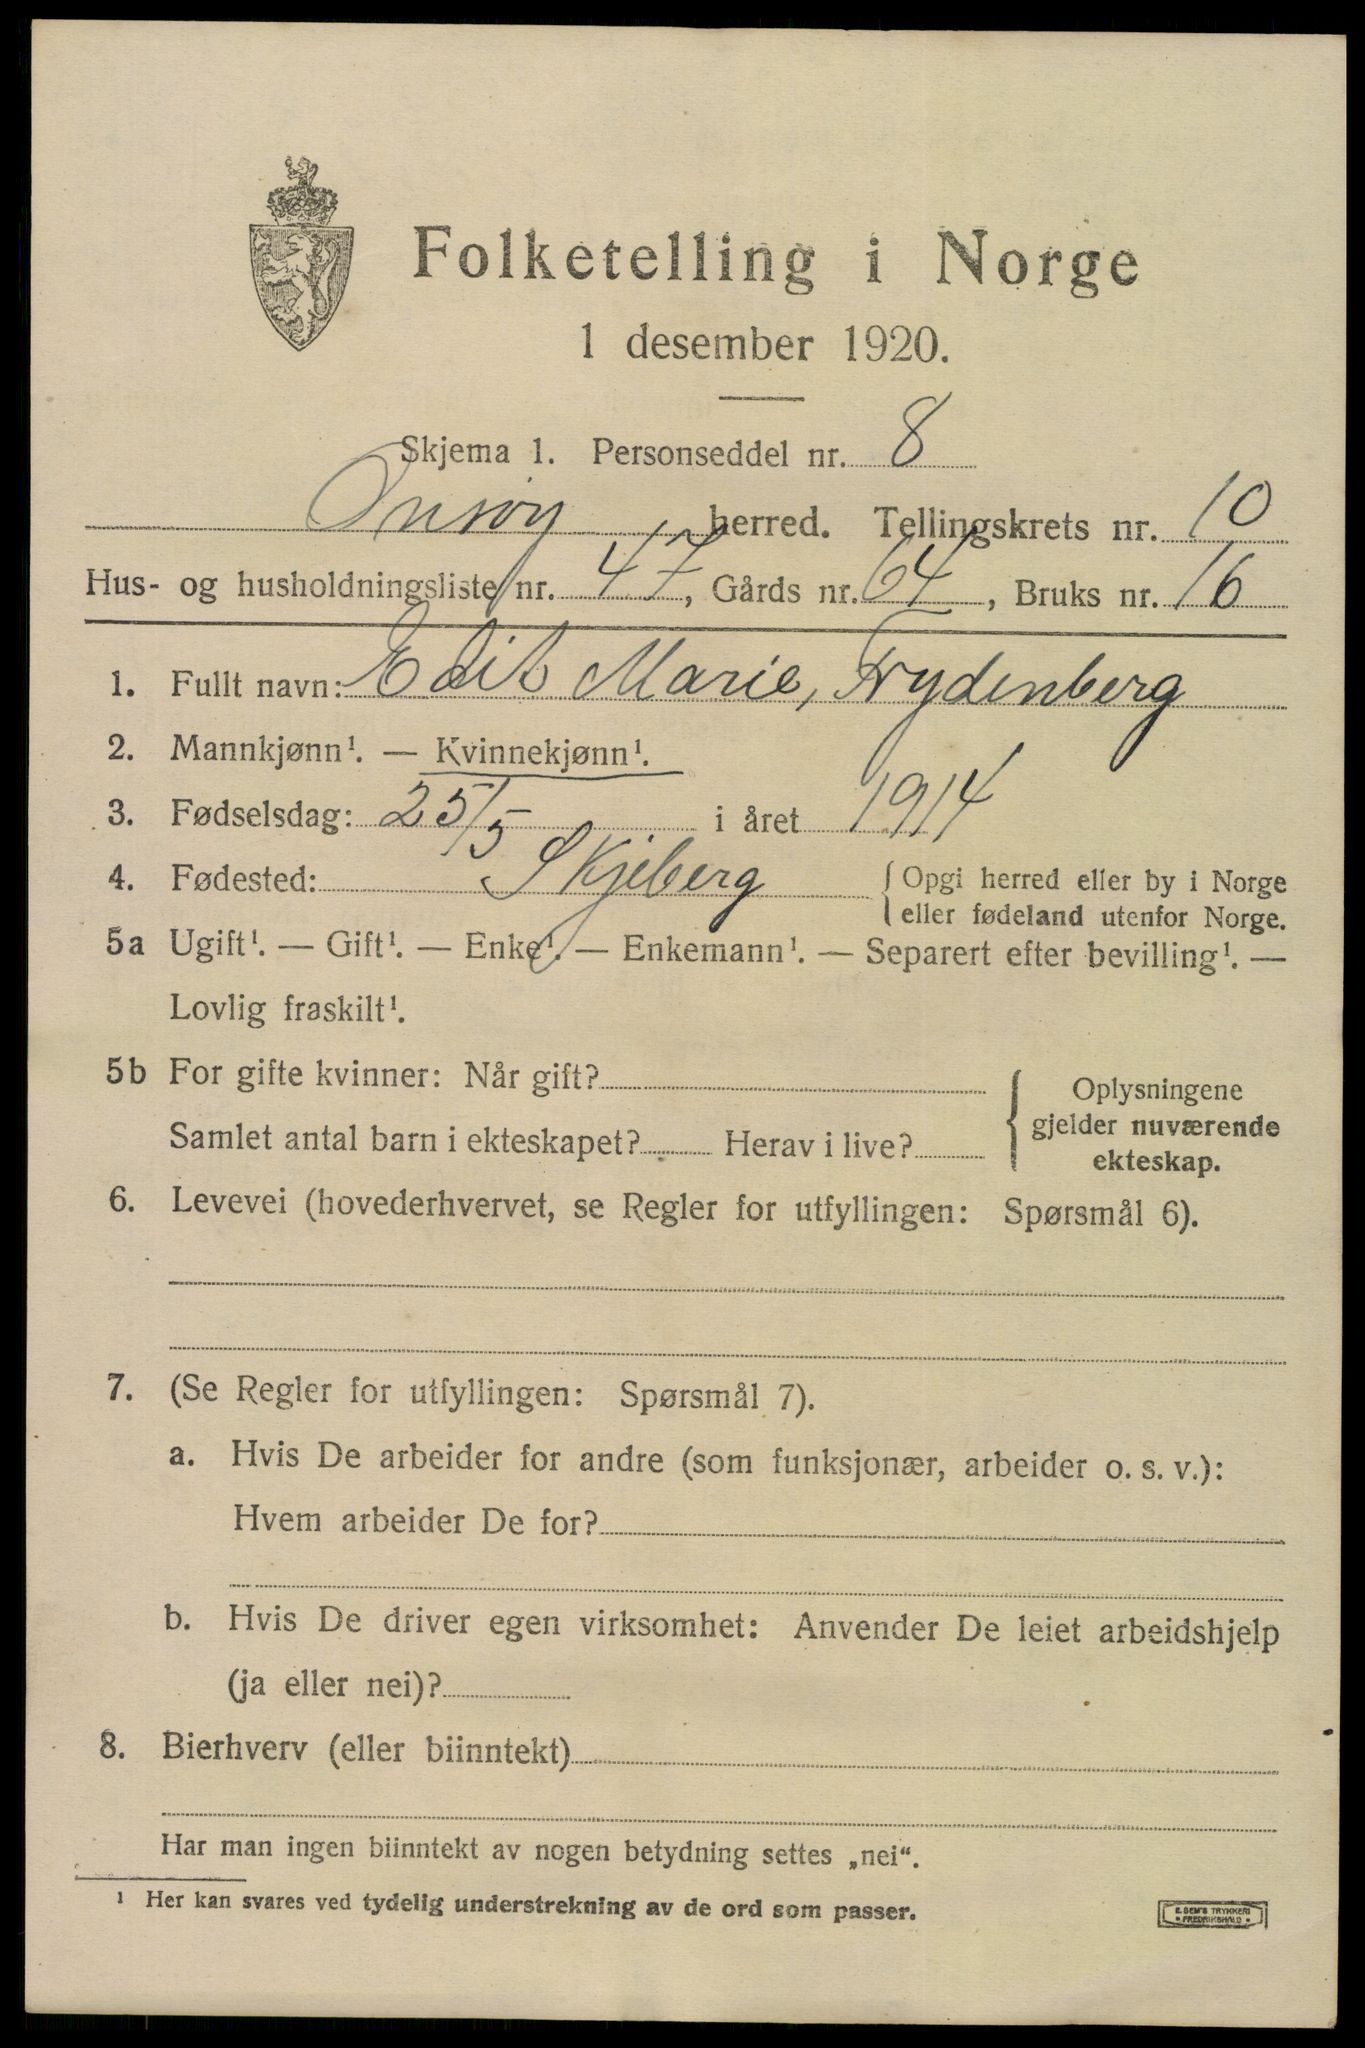 Folketelling i Norge
1 desember 1920.
Skjema 1. Personseddel nr. 8
Onsøy herred. Tellingskrets nr. 10
Hus- og husholdningsliste nr. 47, Gårds nr. 64, Bruks nr. 16
1. Fullt navn: Edit Marie, Frydenberg
2. Mannkjønn¹. — Kvinnekjønn¹.
3. Fødselsdag: 25/5 i året 1914
4. Fødested: Skjeberg { Opgi herred eller by i Norge
eller fødeland utenfor Norge.
5a Ugift¹. — Gift¹. — Enke¹. — Enkemann¹. — Separert efter bevilling¹. —
Lovlig fraskilt¹.
5b For gifte kvinner: Når gift?
Samlet antal barn i ekteskapet? Herav i live?
{ Oplysningene
gjelder nuværende
ekteskap.
6. Levevei (hovederhvervet, se Regler for utfyllingen: Spørsmål 6).
7. (Se Regler for utfyllingen: Spørsmål 7).
a. Hvis De arbeider for andre (som funksjonær, arbeider o. s. v.):
Hvem arbeider De for?
b. Hvis De driver egen virksomhet: Anvender De leiet arbeidshjelp
(ja eller nei)?
8. Bierhverv (eller biinntekt)
Har man ingen biinntekt av nogen betydning settes „nei“.
¹ Her kan svares ved tydelig understrekning av de ord som passer.
E. SEM'S TRYKKERI
• FREDRIKSHALD •